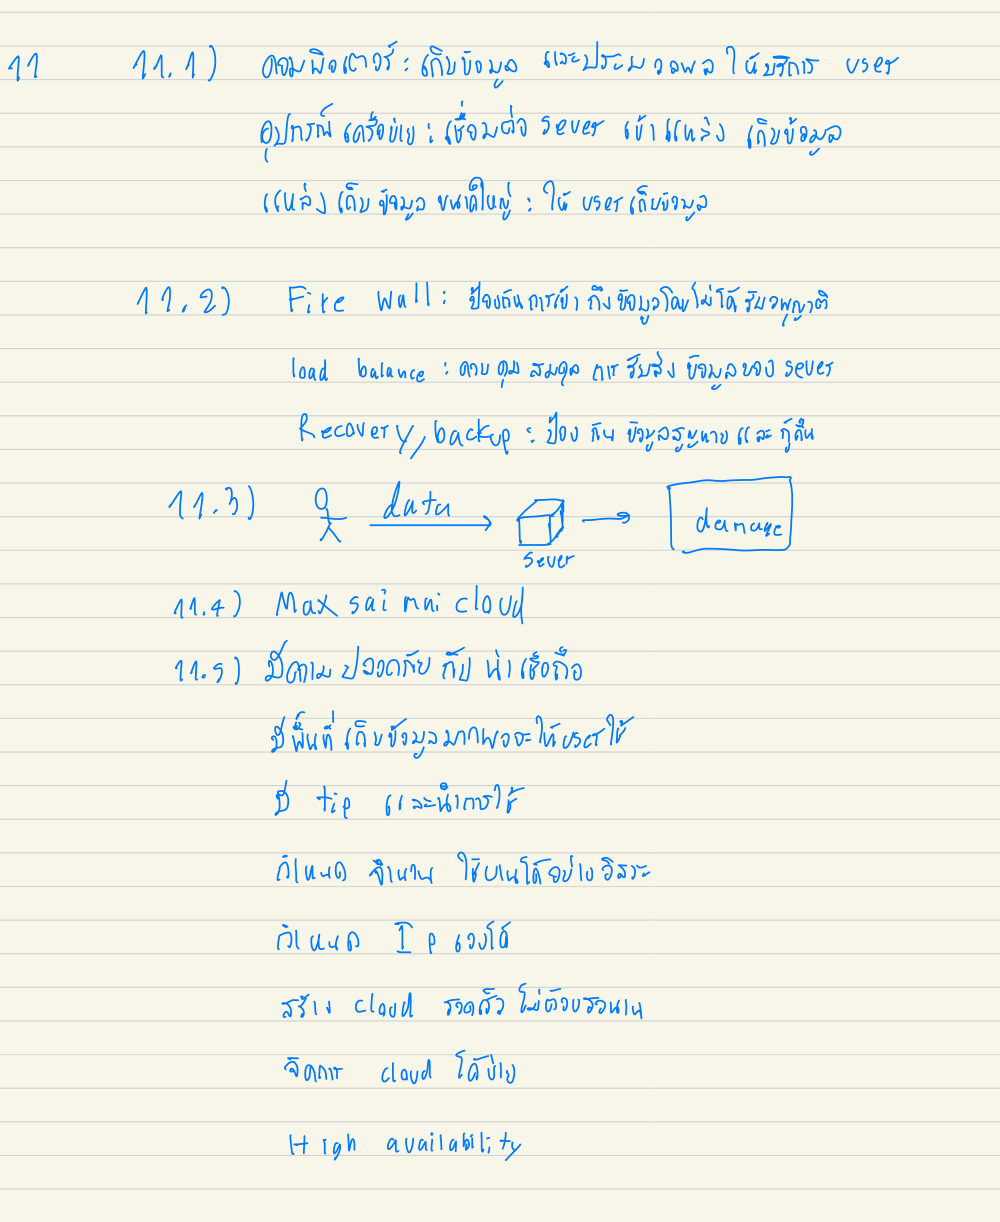 11 11.1) คอมพิวเตอร์ : เก็บข้อมูล และประมวลผล ให้บริการ user
อุปกรณ์ เครือข่าย : เชื่อมต่อ sever เข้า แหล่ง เก็บข้อมูล
แหล่ง เก็บ ข้อมูล ขนาดใหญ่ : ให้ user เก็บข้อมูล
11.2) Fire wall : ป้องกันการเข้า ถึง ข้อมูลโดยไม่ได้ รับ
load balance : ควบคุม สมดุล การ รับส่ง ข้อมูลของ sever
Recovery, backup : ป้อง กัน ข้อมูลสูญหาย และ กู้คืน
11.3) data
sever
damage
11.4) Max sai mai cloud
11.5) มีความ ปลอดภัย น่า เชื่อถือ
มี พื้นที่ เก็บข้อมูลมากพอจะให้ user ใช้
มี tip และนำการใช้
กำหนด จำนวน ใช้งานได้อย่าง อิสระ
กำหนด Ip เองได้
สร้าง cloud รวดเร็ว ไม่ต้องรอนาน
จัดการ cloud ได้ง่าย
High availability